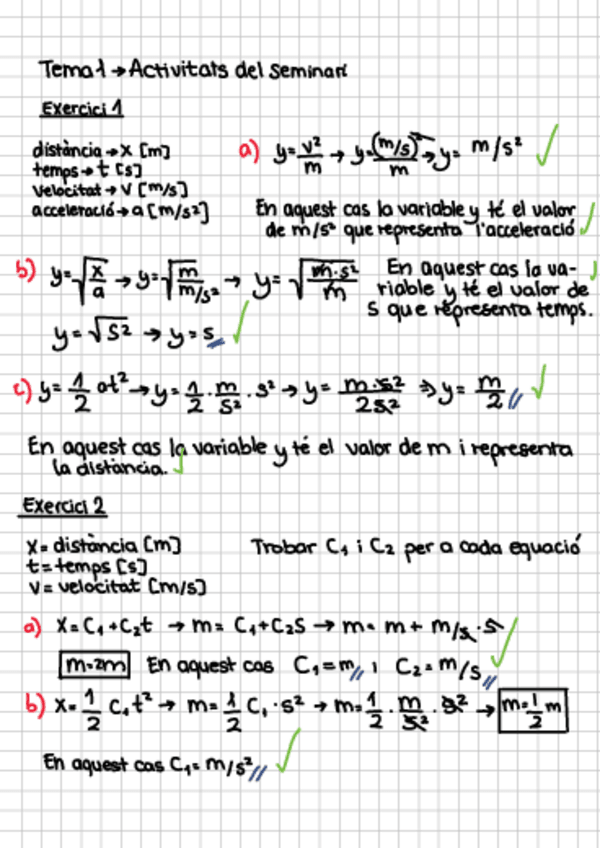 Tema 1 → Activitats del seminari
Exercici 1
distància → x [m]
temps → t [s]
velocitat → v [m/s]
acceleració → a [m/s²]
a) y = v²/m → y = (m/s)²/m → y = m/s²
En aquest cas la variable y té el valor
de m/s² que representa l'acceleració
b) y = √(x/a) → y = √(m/(m/s²)) → y = √(m·s²/m)
y = √s² → y = s
En aquest cas la va-
riable y té el valor de
s que representa temps.
c) y = 1/2 at² → y = 1/2 · m/s² · s² → y = m·s²/2s² ⇒ y = m/2
En aquest cas la variable y té el valor de m i representa
la distància.
Exercici 2
x = distància [m]
t = temps [s]
v = velocitat [m/s]
Trobar C₁ i C₂ per a cada equació
a) x = C₁ + C₂t → m = C₁ + C₂s → m = m + m/s · s
m = 2m En aquest cas C₁ = m i C₂ = m/s
b) x = 1/2 C₁t² → m = 1/2 C₁ · s² → m = 1/2 · m/s² · s² → m = 1/2 m
En aquest cas C₁ = m/s²